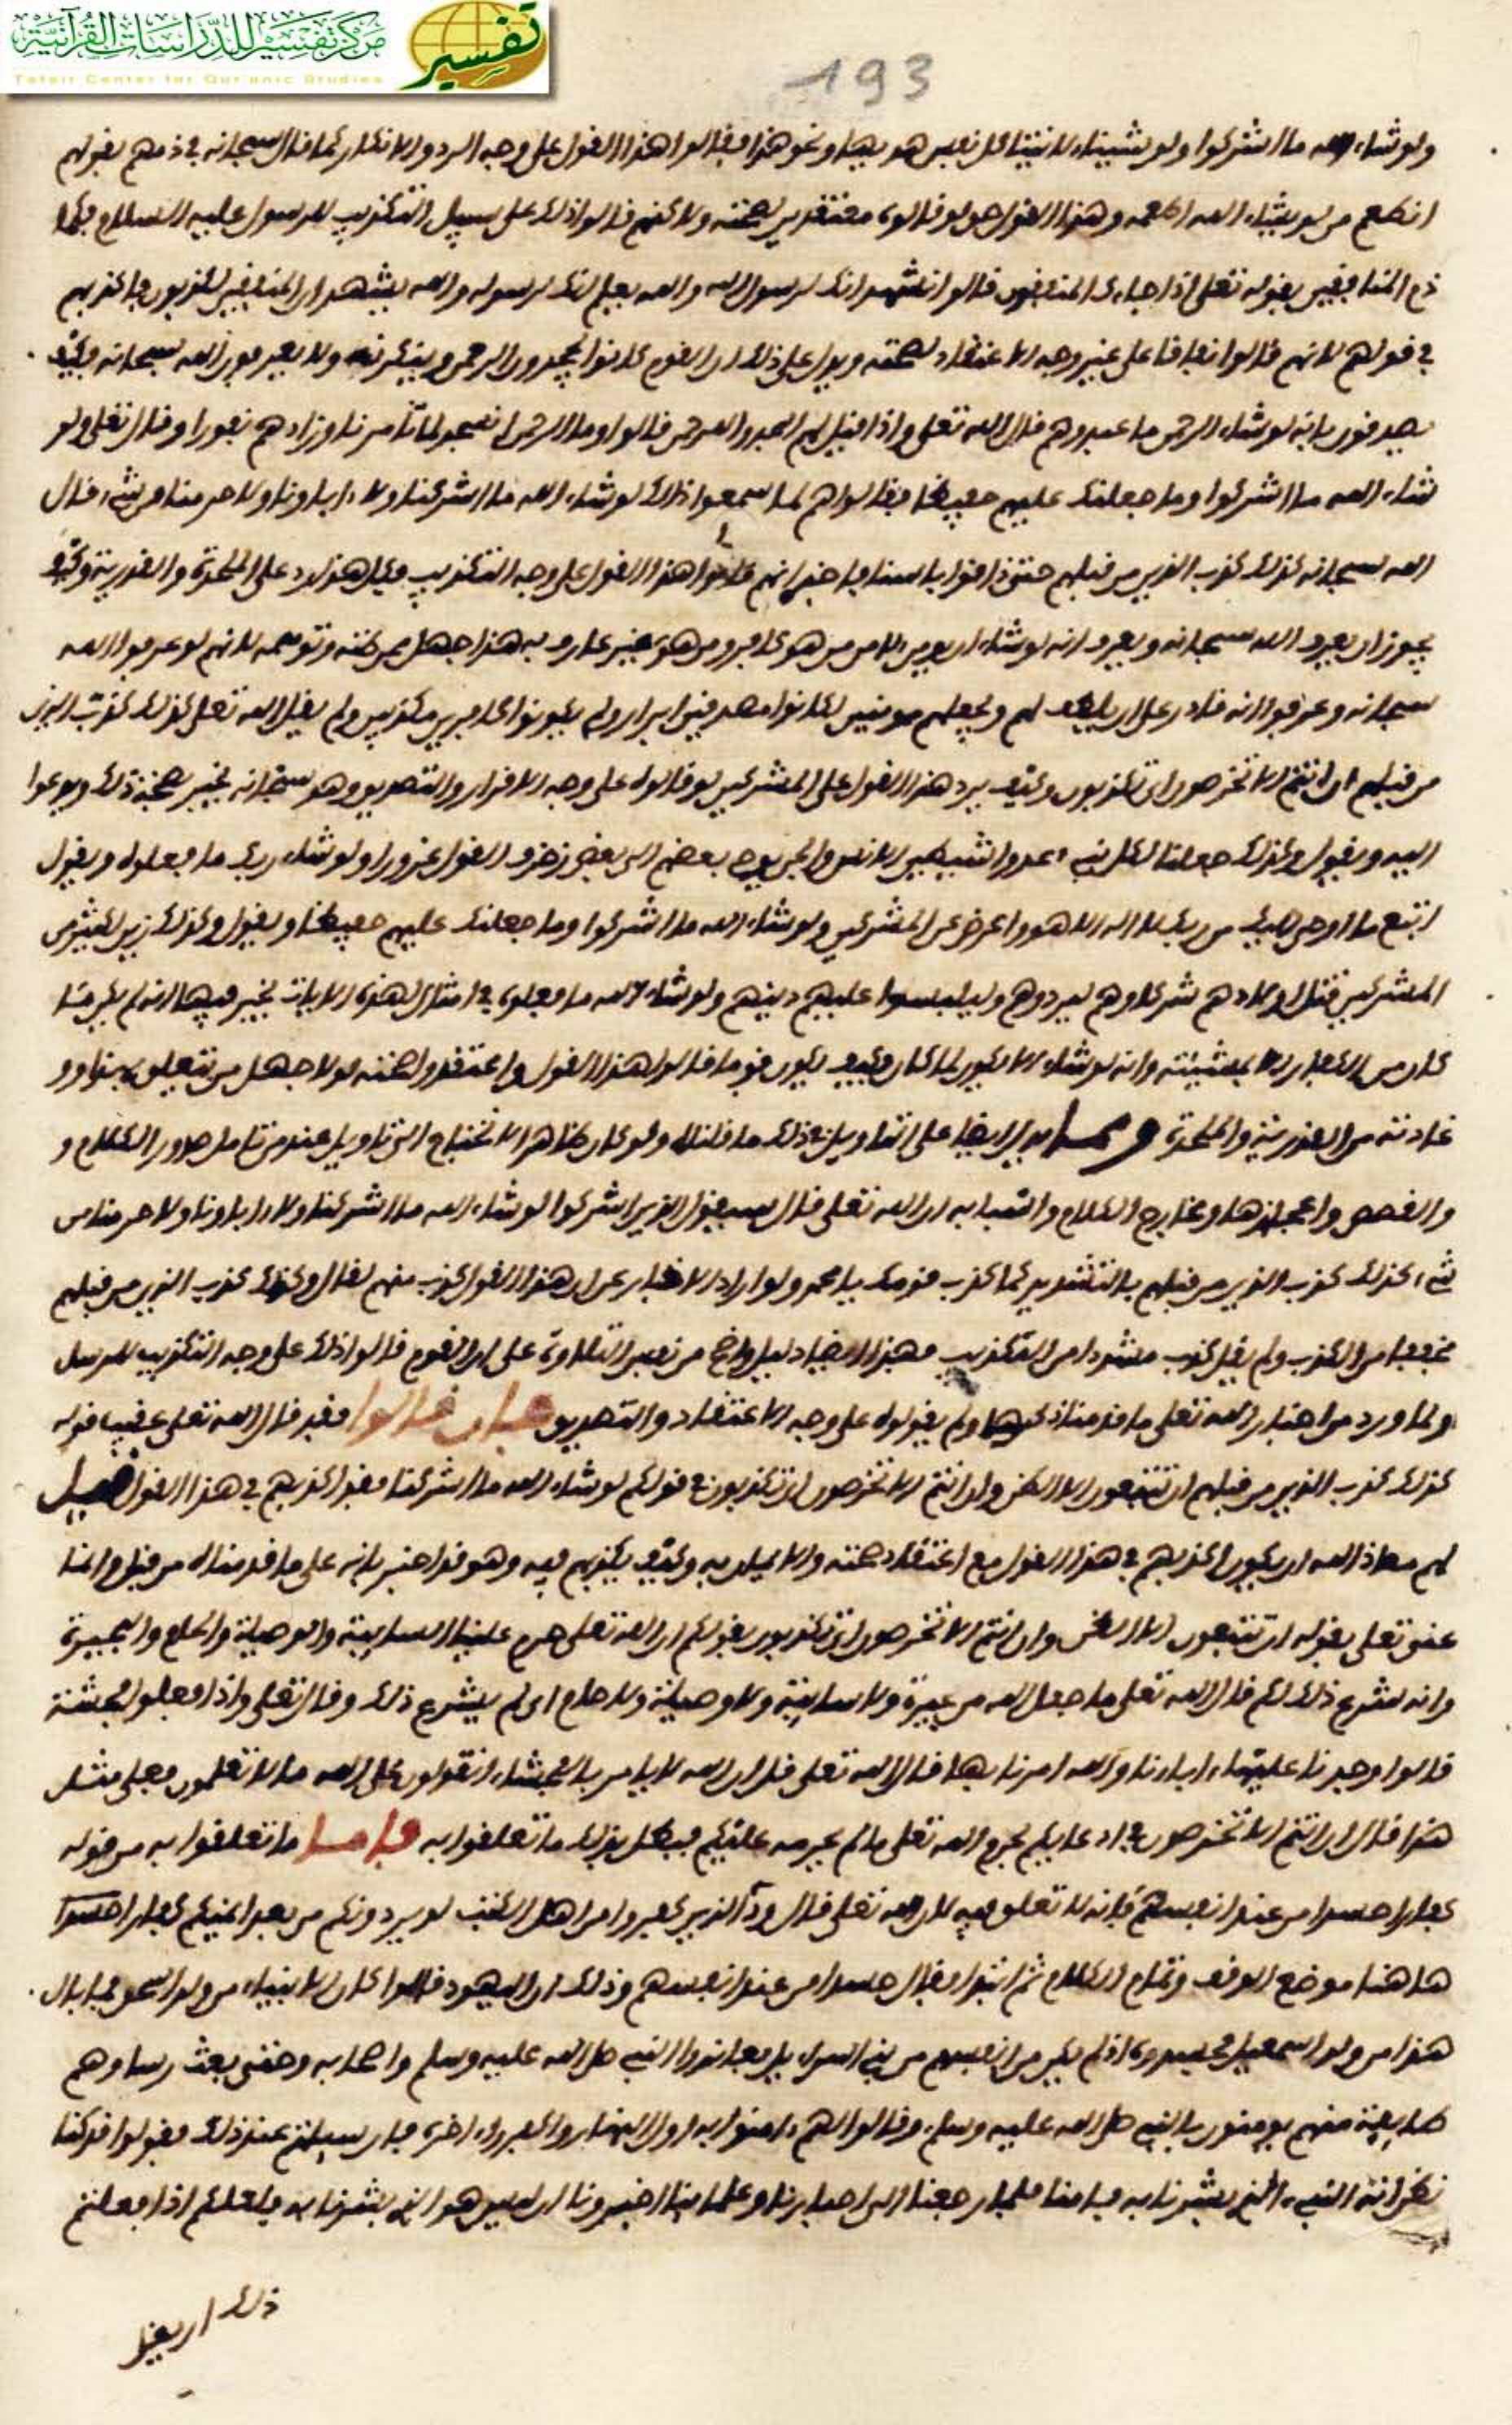 مركز تفسير للدراسات القرآنية
تفسير
Tafsir Center for Qur'anic Studies
193
ولو شاء الله ما اشركوا ولو شينا لاتينا كل نفس هديها ونحو هذا فقالوا هذا القول على وجه الرد والانكار كما قال سبحانه في ذمهم بقولهم
انطعم من لو يشاء الله اطعمه وهذا القول هو لو قالوه معتقدين لصحته ولاكنهم قالوا ذلك على سبيل التكذيب للرسول عليه السلام فكما
ذم المنافقين بقوله تعلى اذا جاءك المنفقون قالوا نشهد انك لرسول الله والله يعلم انك لرسوله والله يشهد ان المنفقين لكذبون فاكذبهم
في قولهم لانهم قالوا نفاقا على غير وجه الاعتقاد لصحته ويدل على ذلك ان القوم كانوا يجحدون الرحمن وينكرونه ولا يعرفون الله سبحانه فكيف
يصدقون بانه لو شاء الرحمن ما عبدوهم قال الله تعلى واذا قيل لهم اسجدوا للرحمن قالوا وما الرحمن انسجد لما تامرنا وزادهم نفورا وقال تعلى ولو
شاء الله ما اشركوا وما جعلنك عليهم حفيظا فقالوا هم لما سمعوا ذلك لو شاء الله ما اشركنا ولا ءاباونا ولا حرمنا من شيء قال
الله سبحانه كذلك كذب الذين من قبلهم حتى ذاقوا باسنا فاخبر انهم قالوا هذا القول على وجه التكذيب فكل هذا رد على الملحدة والقدرية وكيف
يجوز ان يعرف الله سبحانه ويعرف انه لو شاء ان يومن لامن من هو كافر ومن هو غير عارف به هذا جهل ممن ظنه وتوهمه لانهم لو عرفوا الله
سبحانه وعرفوا انه قادر على ان يلطف لهم ويجعلهم مومنين لكانوا مصدقين ابرار ولم يكونوا كافرين مكذبين ولم يقل الله تعلى كذلك كذب الذين
من قبلهم ان انتم الا تخرصون اي تكذبون وكيف يرد هذا القول على المشركين لو قالوه على وجه الاقرار والتصديق وهو سبحانه يخبر بصحة ذلك ويدعوا
اليه ويقول وكذلك جعلنا لكل نبيء عدوا شيطين الانس والجن يوحي بعضهم الى بعض زخرف القول غرورا ولو شاء ربك ما فعلوه ويقول
اتبع ما اوحي اليك من ربك لا اله الا هو واعرض عن المشركين ولو شاء الله ما اشركوا وما جعلنك عليهم حفيظا ويقول وكذلك زين لكثير من
المشركين قتل اولادهم شركاوهم ليردوهم وليلبسوا عليهم دينهم ولو شاء الله ما فعلوه في امثال لهذه الايات يخبر فيها انه لم يكن ما
كان من الكفار الا بمشيئته وانه لو شاء الا يكون لما كان فكيف يكون قوم ما قالوا هذا القول واعتقدوا صحته لولا جهل من يتعلق بهذا و
عادته من القدرية والملحدة ومما يدل ايضا على ان تاويل ذلك ما قلناه ولو كان ظاهرا لا يحتاج الى تاويل عند من تامل صدور الكلام و
والقصص واعجازها ومخارج الكلام واسبابه ان الله تعلى قال سيقول الذين اشركوا لو شاء الله ما اشركنا ولا ءاباونا ولا حرمنا من
شيء كذلك كذب الذين من قبلهم بالتشديد كما كذب قومك يا محمد ولو اراد الاخبار عن ان هذا القول كذب منهم لقال وكذلك كذب الذين من قبلهم
مخففا من الكذب ولم يقل كذب مشددا من التكذيب فهذا ايضا دليل واضح من نفس التلاوة على ان القوم قالوا ذلك على وجه التكذيب للرسل
ولما ورد من اخبار الله تعلى ما قدمنا ذكرها ولم يقولوه على وجه الاعتقاد والتصديق فان قالوا فقد قال الله تعلى عقيب قوله
كذلك كذب الذين من قبلهم ان تتبعون الا الظن وان انتم الا تخرصون اي تكذبون في قولكم لو شاء الله ما اشركنا فقد اكذبهم في هذا القول قيل
لهم معاذ الله ان يكون اكذبهم في هذا القول مع اعتقاد صحته والايمان به وكيف يكذبهم فيه وهو قد اخبر بانه على ما قدمناه من قبل وانما
عنى تعلى بقوله ان تتبعون الا الظن وان انتم الا تخرصون اي تكذبون بقولكم ان الله تعلى حرم علينا السايبة والوصيلة والحام والبحيرة
وانه شرع ذلك لكم قال الله تعلى ما جعل الله من بحيرة ولا سايبة ولا وصيلة ولا حام اي لم يشرع ذلك وقال تعلى واذا فعلوا فحشة
قالوا وجدنا عليها ءاباءنا والله امرنا بها قال الله تعلى قل ان الله لا يامر بالفحشاء اتقولون على الله ما لا تعلمون فعلى مثل
هذا قال ان انتم الا تخرصون في ادعايكم تحريم الله تعلى ما لم يحرمه عليكم فبطل بذلك ما تعلقوا به فاما ما تعلقوا به من قوله
كفارا حسدا من عند انفسهم فانه لا تعلق فيه لان الله تعلى قال ود الذين كفروا من اهل الكتب لو يردونكم من بعد ايمنكم كفارا حسدا
ها هنا موضع الوقف وتمام الكلام ثم ابتدا فقال حسدا من عند انفسهم وذلك ان اليهود قالوا كان الانبياء من ولد اسحق فما بال
هذا من ولد اسمعيل فحسدوه اذ لم يكن من انفسهم من بني اسرءيل فعاندوا النبي صلى الله عليه وسلم واصحابه وحتى بعث رساوهم
طايفة منهم يومنون بالنبي صلى الله عليه وسلم وقالوا لهم ءامنوا به اول النهار واكفروا ءاخره فان سيلتم عند ذلك فقولوا قد كنا
نظن انه النبيء الذي بشرنا به فئامنا فلما رجعنا الى احبارنا وعلماينا اخبرونا ان ليس هو الذي بشرنا به فلعلكم اذا فعلتم
ذلك ان يقل